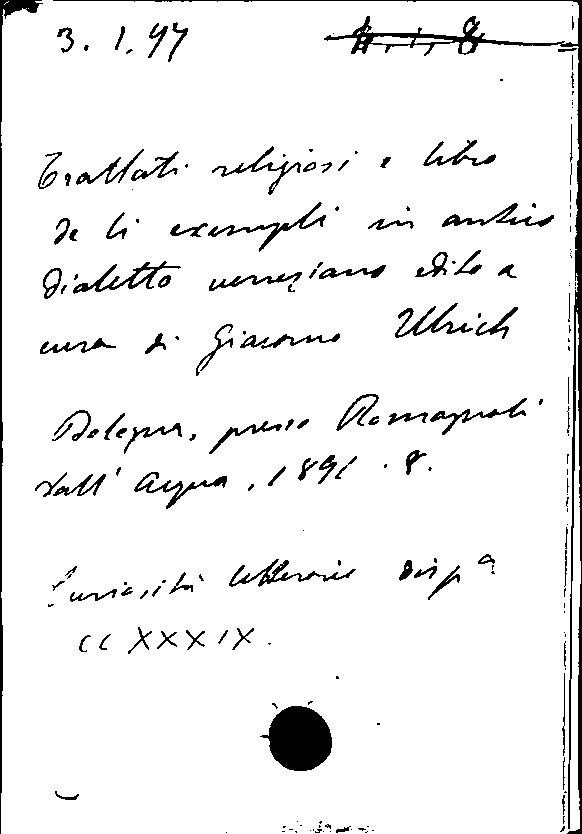 3. 1. 97 4. 1. 8
Trattati religiosi e libro
de li exempli in antico
dialetto veneziano edito a
cura di Giacomo Ulrich
Bologna, presso Romagnoli
dall' Acqua, 1891 . 8.
Curiosità letterarie disp a
CCXXXIX.